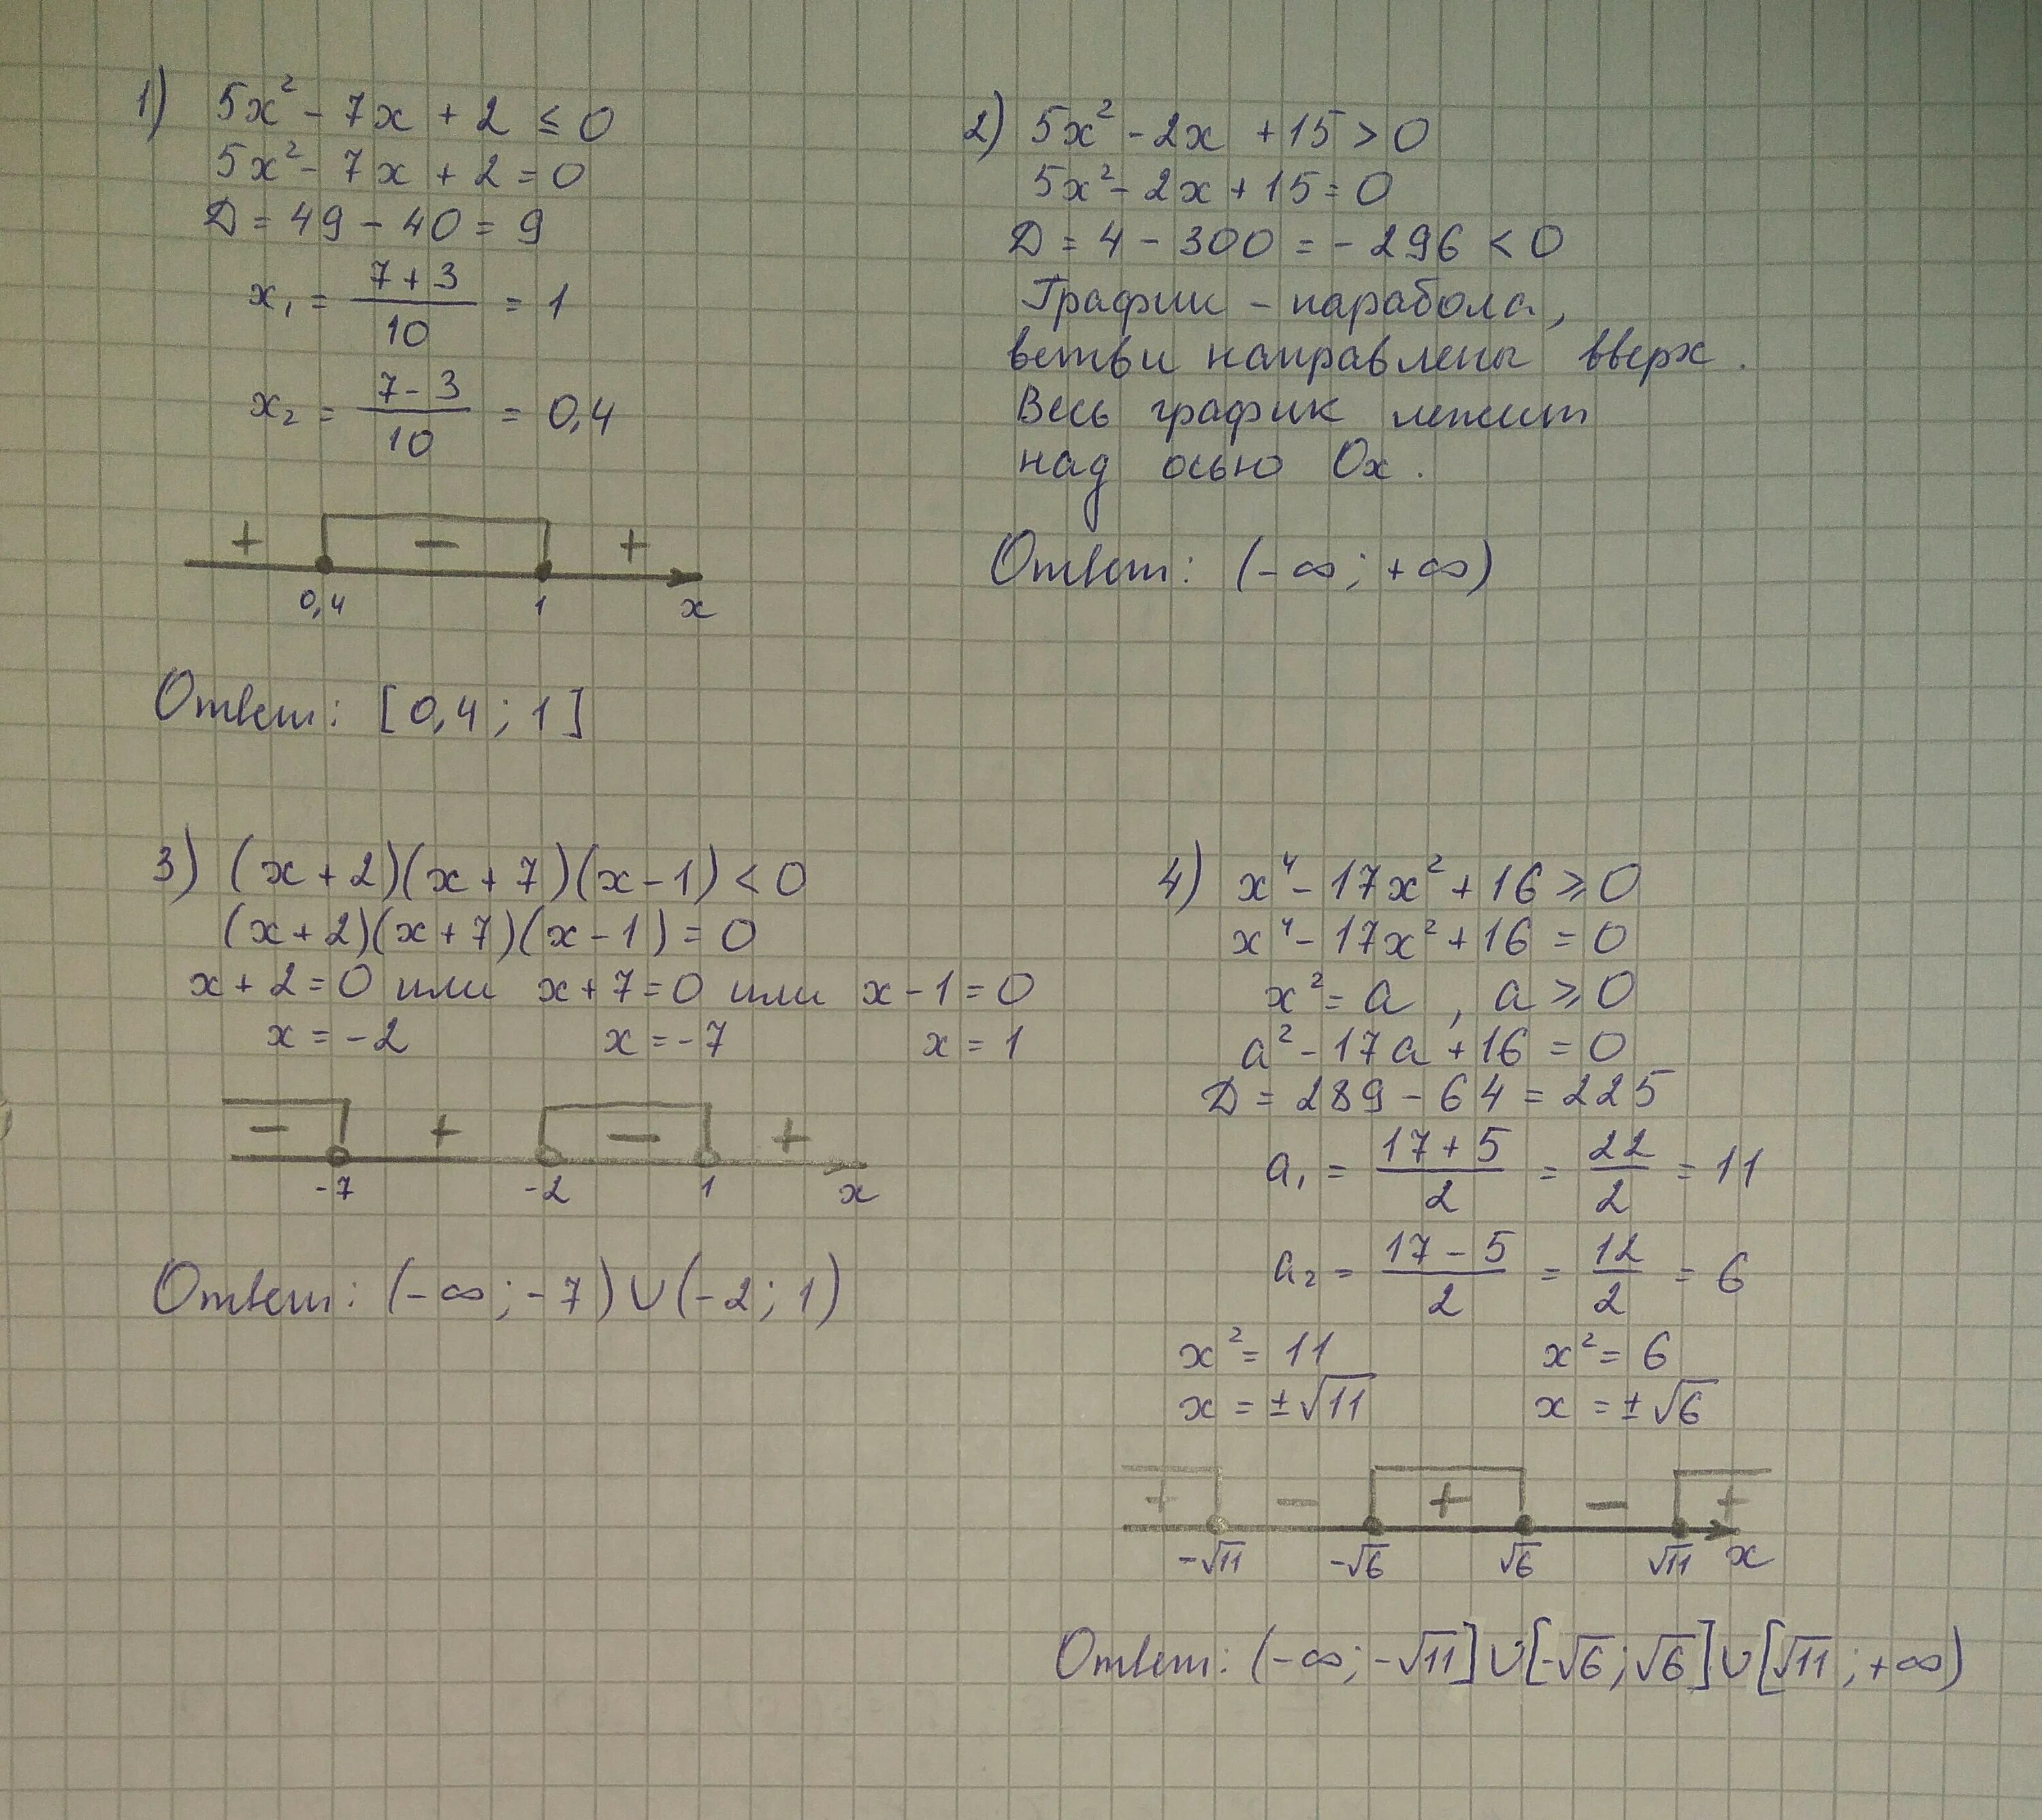 1) 5x² - 7x + 2 ≤ 0
5x² - 7x + 2 = 0
D = 49 - 40 = 9
x₁ = (7 + 3)/10 = 1
x₂ = (7 - 3)/10 = 0,4
+ - +
0,4 1 x
Ответ: [0,4; 1]
2) 5x² - 2x + 15 > 0
5x² - 2x + 15 = 0
D = 4 - 300 = - 296 < 0
График - парабола,
ветви направлены вверх.
Весь график лежит
над осью Ox.
Ответ: (- ∞; + ∞)
3) (x + 2)(x + 7)(x - 1) < 0
(x + 2)(x + 7)(x - 1) = 0
x + 2 = 0 или x + 7 = 0 или x - 1 = 0
x = -2 x = -7 x = 1
- + - +
-7 -2 1 x
Ответ: (- ∞; - 7) ∪ (- 2; 1)
4) x⁴ - 17x² + 16 ≥ 0
x⁴ - 17x² + 16 = 0
x² = a, a ≥ 0
a² - 17a + 16 = 0
D = 289 - 64 = 225
a₁ = (17 + 5)/2 = 22/2 = 11
a₂ = (17 - 5)/2 = 12/2 = 6
x² = 11 x² = 6
x = ±√11 x = ±√6
+ - + - +
-√11 -√6 √6 √11 x
Ответ: (- ∞; -√11] ∪ [-√6; √6] ∪ [√11; + ∞)